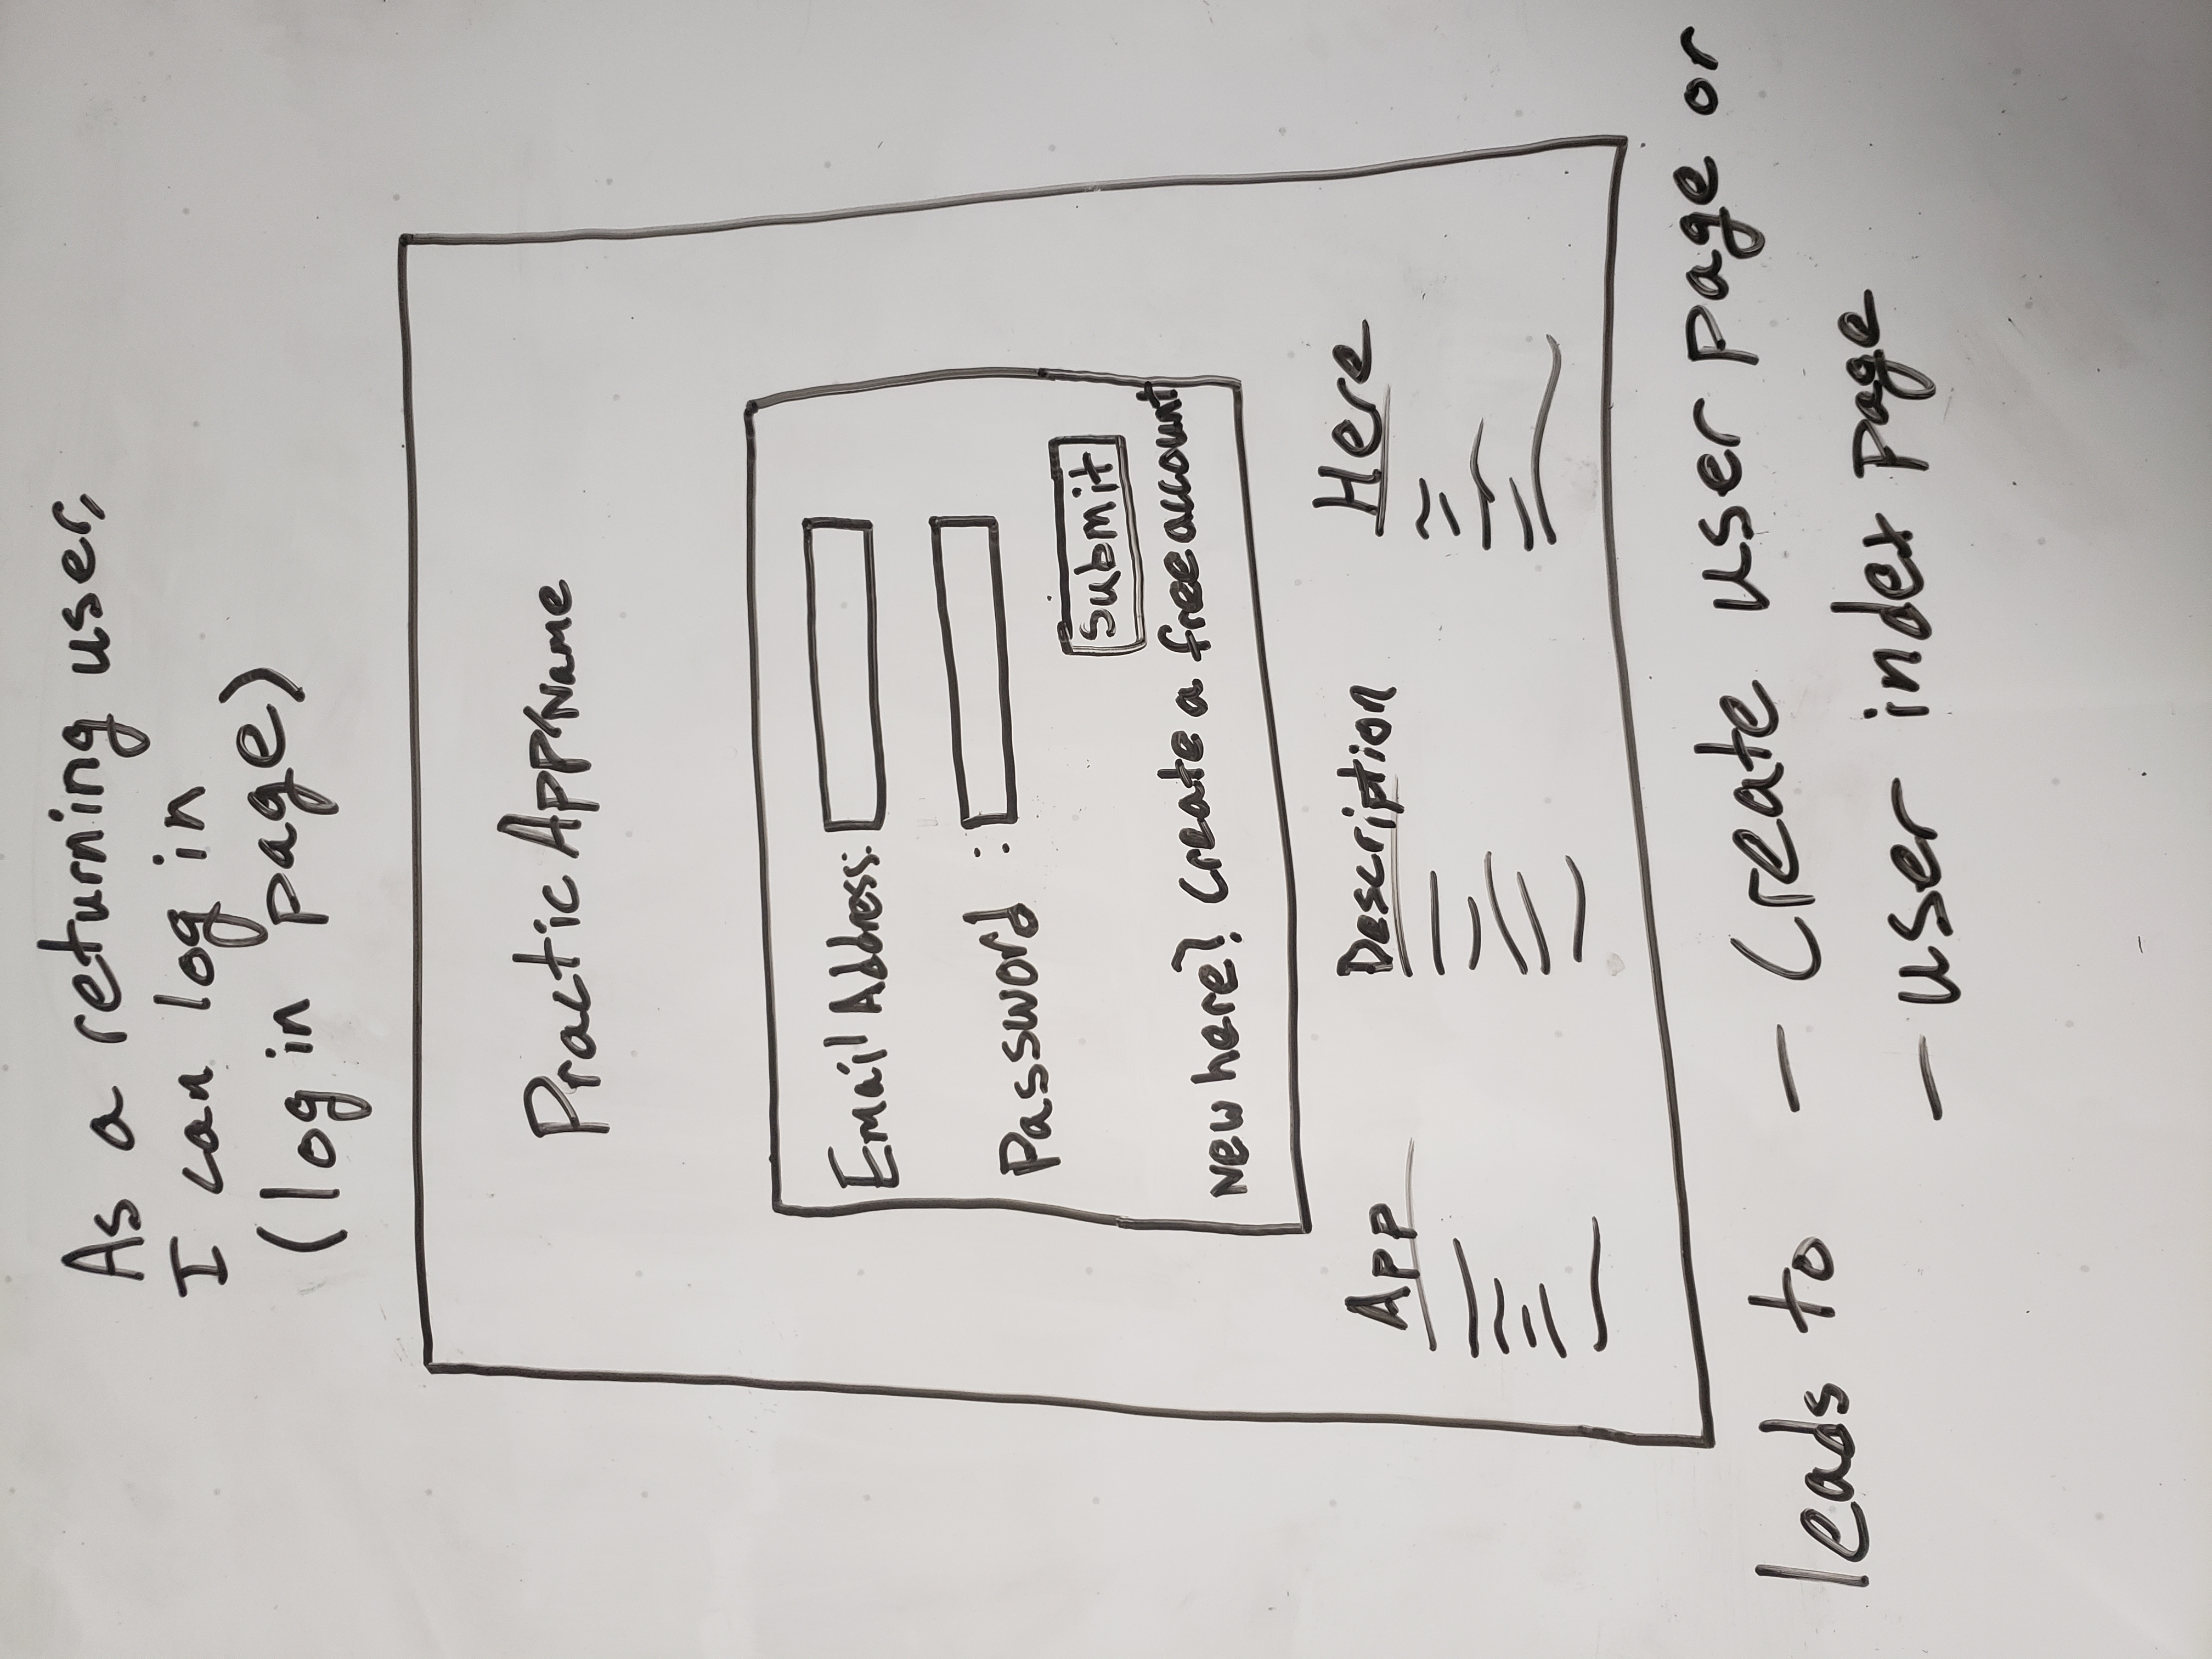 As a returning user,
I can log in
(log in page)
Practic App Name
Email Address:
Password :
Submit
New here? Create a free account
App Description Here
leads to - Create user page or
- user index page